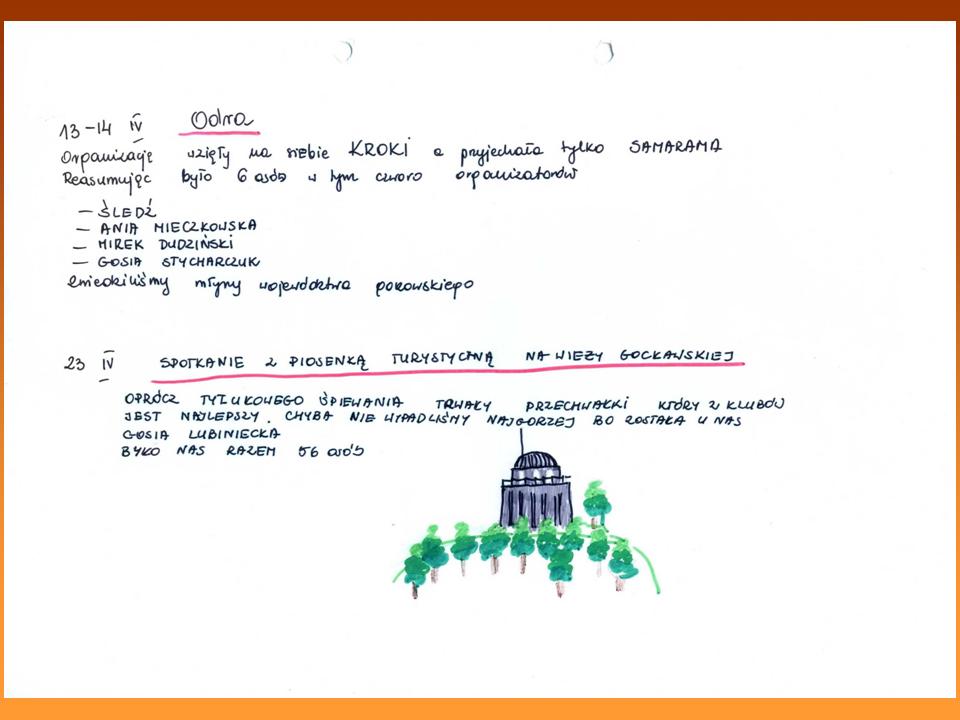 13-14 IV Odra
Organizację wzięły na siebie KROKI a przyjechała tylko SAMARAMA
Reasumując było 6 osób w tym czworo organizatorów
- ŚLEDŹ
- ANIA MIECZKOWSKA
- MIREK DUDZIŃSKI
- GOSIA STYCHARCZUK
młyny województwa
23 IV SPOTKANIE Z PIOSENKĄ TURYSTYCZNĄ NA WIEŻY GOCŁAWSKIEJ
OPRÓCZ TYTUŁOWEGO ŚPIEWANIA TRWAŁY PRZECHWAŁKI KTÓRY Z KLUBÓW
JEST NAJLEPSZY. CHYBA NIE WYPADLIŚMY NAJGORZEJ BO ZOSTAŁA U NAS
GOSIA LUBINIECKA
BYŁO NAS RAZEM 56 osób